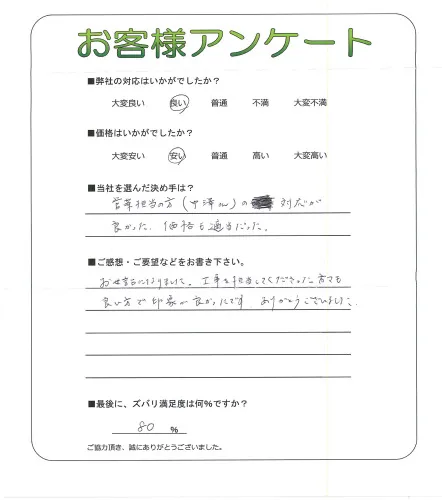 お客様アンケート
■弊社の対応はいかがでしたか?
大変良い 良い 普通 不満 大変不満
■価格はいかがでしたか?
大変安い 安い 普通 高い 大変高い
■当社を選んだ決め手は?
営業担当の方(中澤さん)の 対応が
良かった。価格も適当だった。
■ご感想・ご要望などをお書き下さい。
お世話になりました。工事を担当してくださった方も
良い方で印象が良かったです。ありがとうございました。
■最後に、ズバリ満足度は何%ですか?
80 %
ご協力頂き、誠にありがとうございました。